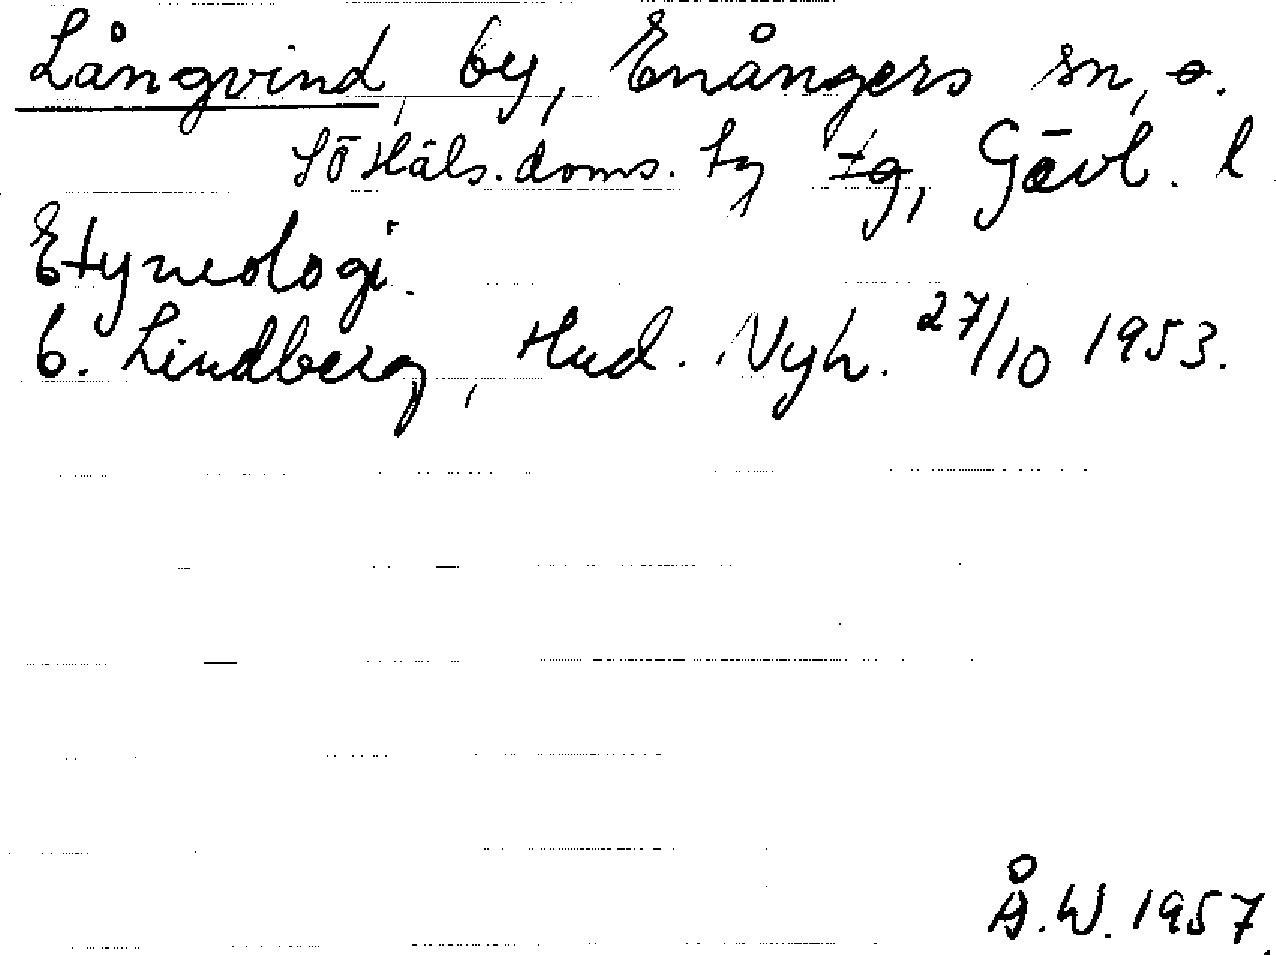 Långvind, by, Enångers sn, o.
SÖ Häls. doms. tg tg, Gävl. l
Etymologi.
C. Lindberg, Hud. Nyh. 27/10 1953.
Å.W. 1957.